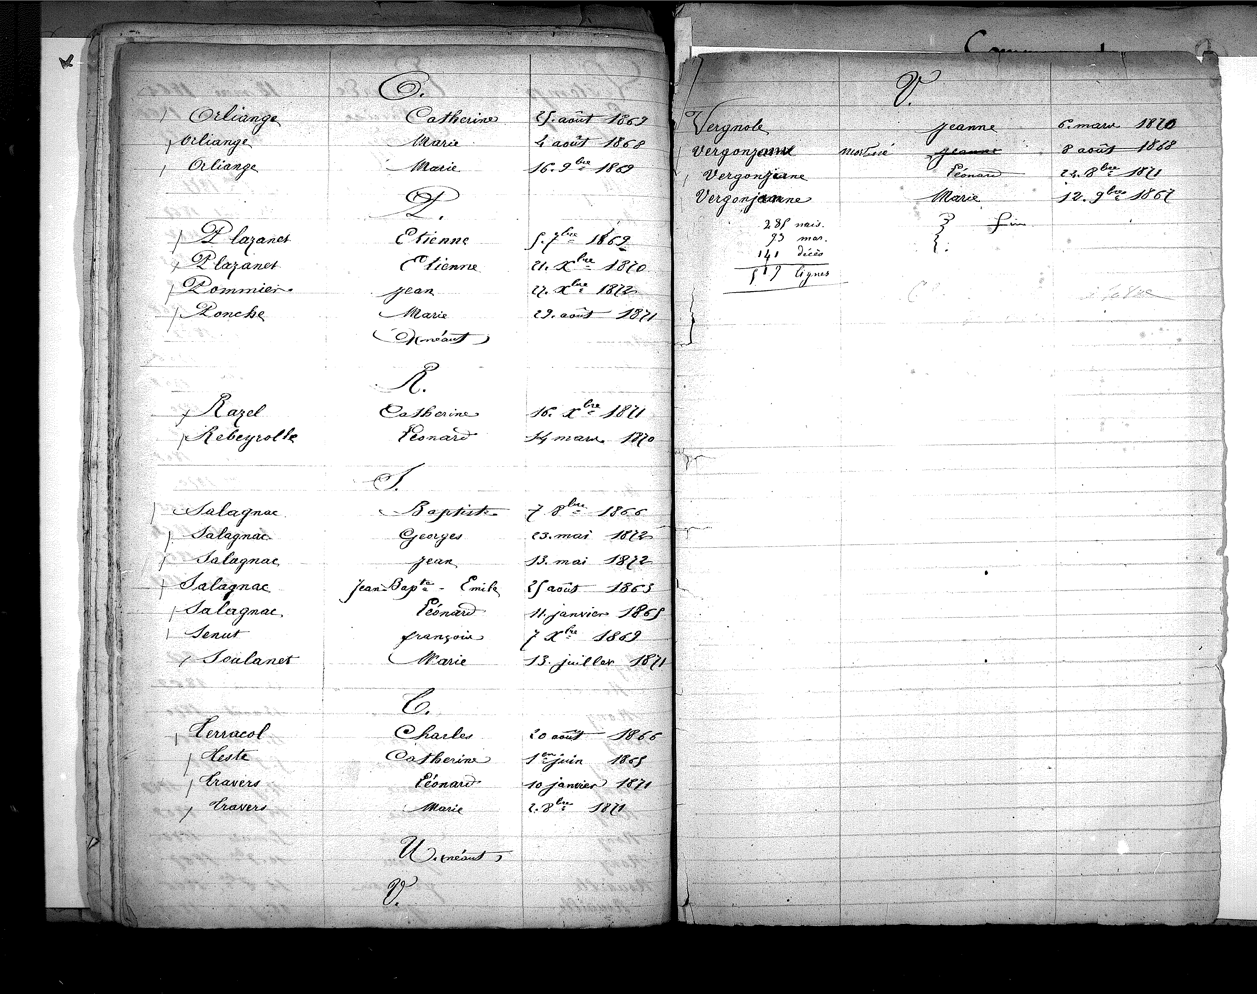 O.
Orliange Catherine 25. août 1869
Orliange Marie 4 août 1868
Orliange Marie 16. 9bre 1869
P.
Plazanet Etienne 5. 7bre 1869
Plazanet Etienne 21. Xbre 1870
Pommier jean 27. Xbre 1872
Ponche Marie 29. août 1871
Q néant
R.
Razel Catherine 16. Xbre 1871
Rebeyrolle Léonard 14 mars 1870
S.
Salagnac Baptiste 7 8bre 1866
Salagnac Georges 23. mai 1872
Salagnac jean 13. mai 1872
Salagnac Jean-Bapte - Emile 25 août 1865
Salagnac Léonard 11. janvier 1865
Senut françois 7 Xbre 1869
Soulanet Marie 13. juillet 1871
T.
Terracol Charles 20 août 1866
Teste Catherine 1er juin 1865
Travers Léonard 10 janvier 1871
Travers Marie 2. 8bre 1871
U. néant
V.
V.
Vergnole jeanne 6. mars 1870
Vergonjeanne mort né jeanne 8 août 1868
Vergonjeanne Léonard 24. 8bre 1871
Vergonjeanne Marie 12. 9bre 1867
285 nais.
93 mar. fin
141 décès
519 lignes